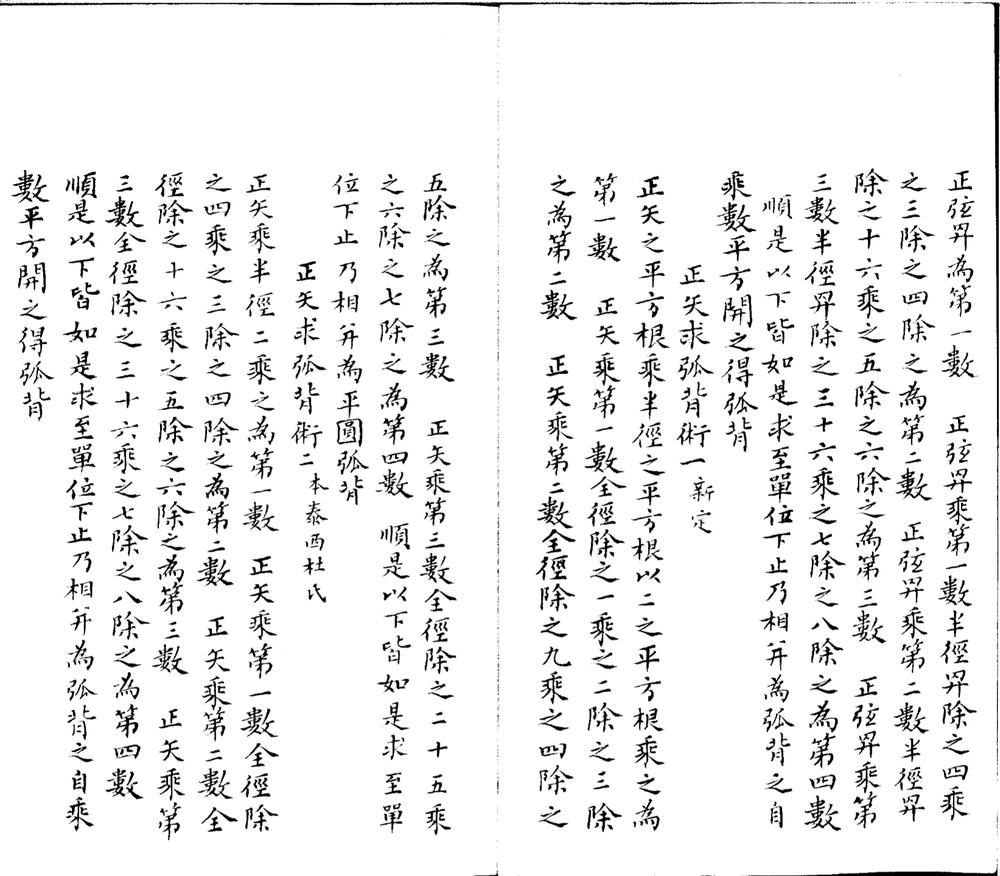 正弦昇為第一數　正弦昇乘第一數半徑昇除之四乘
之三除之四除之為第二數　正弦昇乘第二數半徑昇
除之十六乘之五除之六除之為第三數　正弦昇乘第
三數半徑昇除之三十六乘之七除之八除之為第四數
順是以下皆如是求至單位下止乃相并為弧背之自
乘數平方開之得弧背
正矢求弧背術一 新定
正矢之平方根乘半徑之平方根以二之平方根乘之為
第一數　正矢乘第一數全徑除之一乘之二除之三除
之為第二數　正矢乘第二數全徑除之九乘之四除之
五除之為第三數　正矢乘第三數全徑除之二十五乘
之六除之七除之為第四數　順是以下皆如是求至單
位下止乃相并為平圓弧背
正矢求弧背術二 本泰西杜氏
正矢乘半徑二乘之為第一數　正矢乘第一數全徑除
之四乘之三除之四除之為第二數　正矢乘第二數全
徑除之十六乘之五除之六除之為第三數　正矢乘第
三數全徑除之三十六乘之七除之八除之為第四數
順是以下皆如是求至單位下止乃相并為弧背之自乘
數平方開之得弧背